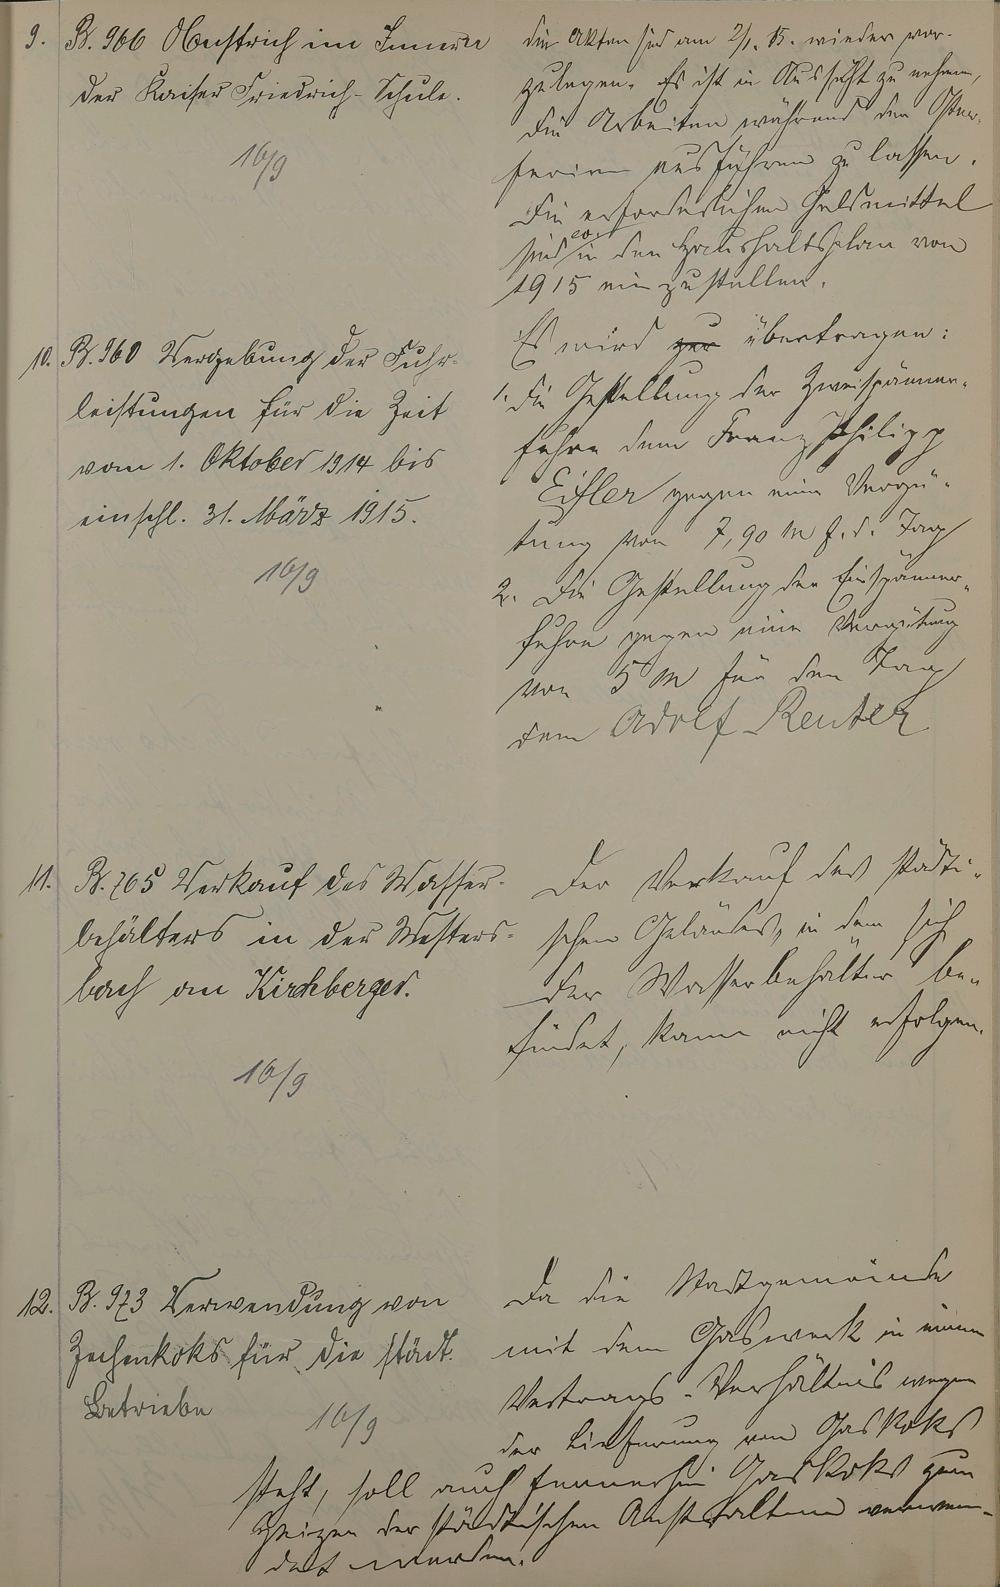 9. B. 966 Ölanstrich im Innern
der Kaiser Friedrich-Schule.
16/9
die Akten sind am 2/1. 15. wieder vor-
zulegen. Es ist in Aussicht zu nehmen,
die Arbeiten während den Oster-
ferien ausführen zu lassen.
Die erforderlichen Geldmittel
sind ev. in den Haushaltsplan von
1915 einzustellen.
10. B. 960 Vergebung der Fuhr-
leistungen für die Zeit
vom 1. Oktober 1914 bis
einschl. 31. März 1915.
16/9
Es wird zur übertragen:
1. die Gestellung der Zweispänner-
fuhre dem Franz Philipp
Eifler gegen eine Vergü-
tung von 7,90 M f. d. Tag
2. Die Gestellung der Einspänner-
fuhre gegen eine Vergütung
von 5 M für den Tag
dem Adolf Reuter
11. B. 765 Verkauf des Wasser-
behälters in der Westers-
bach an Kirchberger.
16/9
Der Verkauf des städti-
schen Geländes, in dem sich
der Wasserbehälter be-
findet, kann nicht erfolgen.
12. B. 973 Verwendung von
Zechenkoks für die städt.
Betriebe
16/9
Da die Stadtgemeinde
mit dem Gaswerk in einem
Vertrags-Verhältnis wegen
der Lieferung von Gaskoks
steht, soll auch fernerhin Gaskoks zum
Heizen der städtischen Anstalten verwen-
det werden.